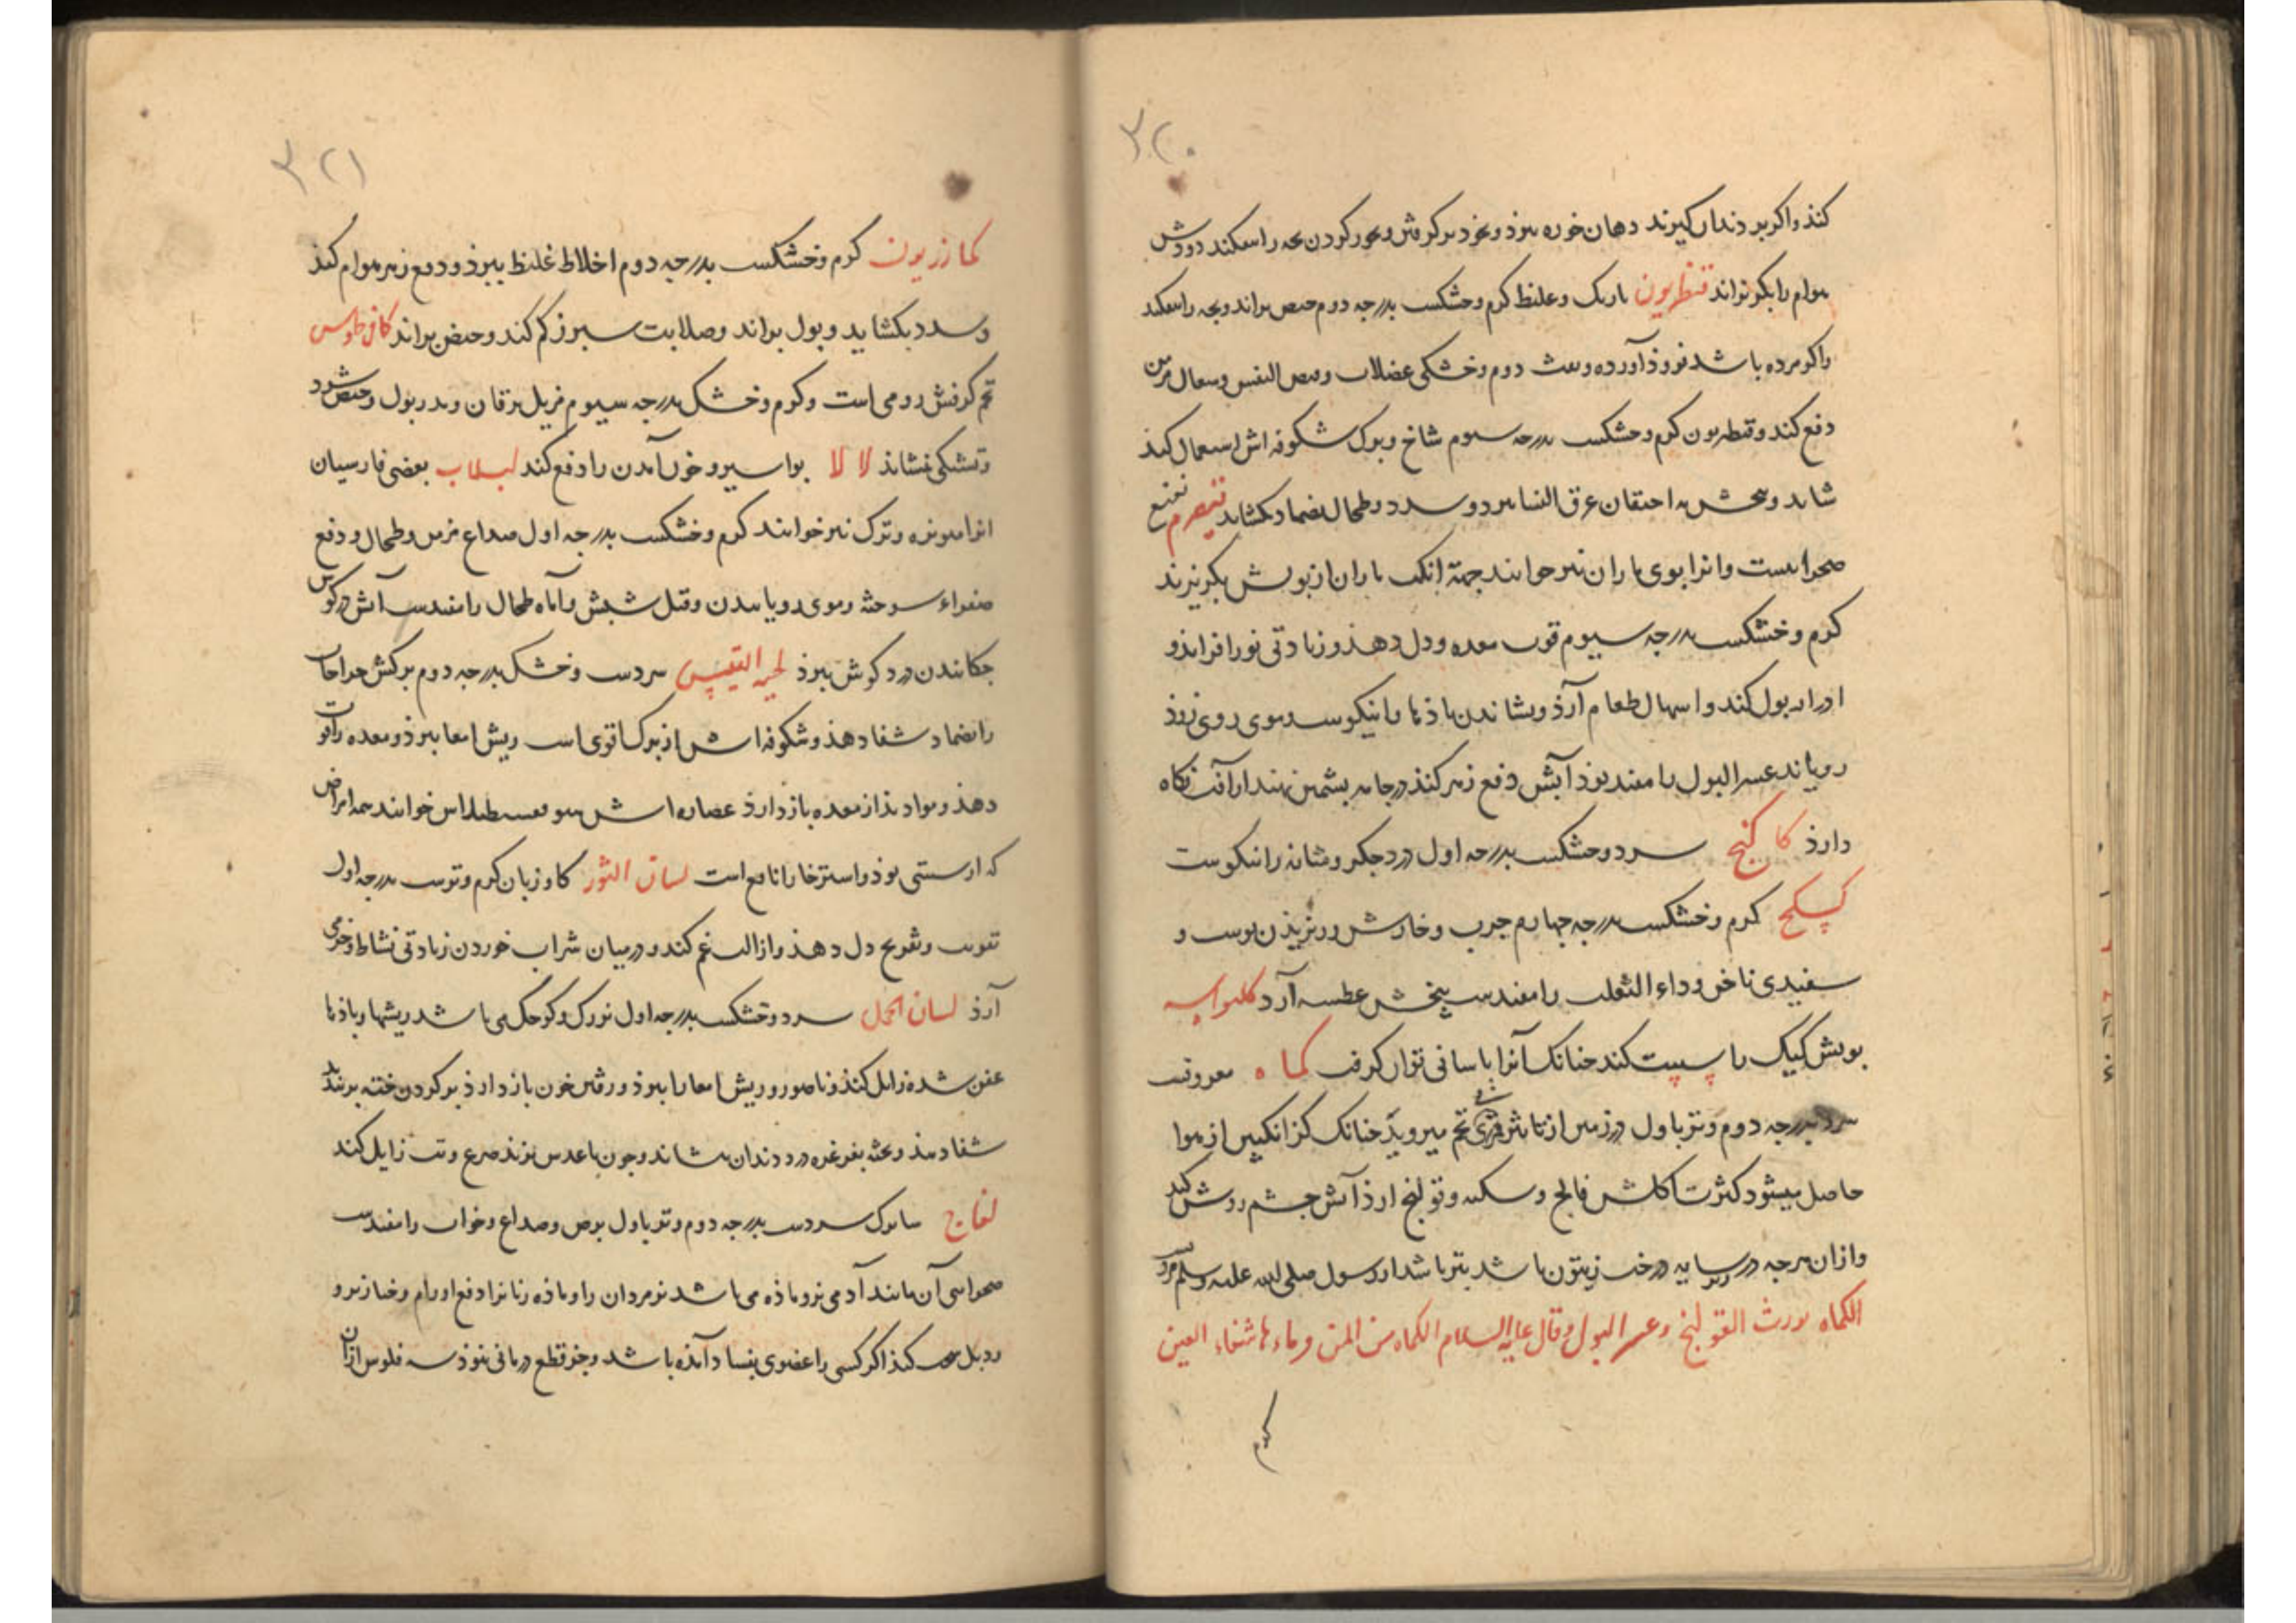 ۳۲۰
کنذ واکر بر دندان کیرند دهان خوره ببرذ وبخوذ برکرفتن وبخور کردن بچه را بیفکند دوذش
هوام را بکریزاند قنطریون باریک وغلیظ کرم وخشکست بدرجه دوم حیض براند وبچه را بیفکند
واکر مرده باشد فروذ آورده ونفث دوم وخشکی عضلات وضیق النفس وسعال مزمن
دفع کند وقنطریون کرم وخشکست بدرجه سیوم شاخ وبرک شکوفه اش استعمال کنذ
شاید احتقان عرق النسا ببرد وسدد وطحال بضماد بکشاید
صحراییست وانرا بوی ماران نیز خوانند جهة آنک ماران از بویش بکریزند
کرم وخشکست بدرجه سیوم قوت معده ودل دهذ وزیادتی نور افزاید و
ادرار بول کند واسهال طعام آرذ ونشاندن باذها را نیکوست وموی روی زوذ
رویاند عسر البول را مفید بوذ آبش دفع زهر کنذ در جامه پشمین نهند از آفت نکاه
دارذ کاکنج سرد وخشکست بدرجه اول درد جکر ومثانه را نیکوست
کرم وخشکست بدرجه چهارم جرب وخارش وریزیذن پوست و
سفیدی ناخن وداء الثعلب را مفیدست بیخش عطسه آرد
بویش کیک را سست کند چنانک آنرا باسانی توان کرفت کماه معروفست
سرد بدرجه دوم وتر باول در زمین از تاثیر قمری شی تخم میروید چنانک کزانکبین از هوا
حاصل میشود کثرت اکلش فالج وسکته وقولنج ارذ آبش چشم روشن کند
وازان هرجه در سایه درخت زیتون باشد بتر باشد از رسول صلی الله علیه وسلم مرویست
الکماه یورث القولنج وعسر البول وقال علیه السلام الکماه من المن وماءها شفاء العین
۳۲۱
کمازریون کرم وخشکست بدرجه دوم اخلاط غلیظ ببرذ ودفع زهر هوام کند
وسدد بکشاید وبول براند وصلابت سپرز کم کند وحیض براند
تخم کرفش رومی است وکرم وخشک بدرجه سیوم مزیل یرقان ومدر بول وحیض شود
وتشنکی نشاند لالا بواسیر وخون آمدن را دفع کند لبلاب بعضی فارسیان
انرا وترک نیز خوانند کرم وخشکست بدرجه اول صداع مزمن وطحال ودفع
صفراء سوخته وموی رویانیدن وقتل شبش وآماه طحال را مفیدست آبش در کوش
چکانیدن درد کوش ببرذ لحیه التیس سردست وخشک بدرجه دوم برکش جراحات
را بضماد شفا دهذ وشکوفه اش از برک اقوی است ریش امعا ببرذ ومعده را قوت
دهذ ومواد بذ از معده باز دارذ عصاره اش خوانند همه امراض
که از سستی بوذ واسترخا را نافع است لسان الثور کاو زبان کرم وترست بدرجه اول
تقویت وتفریح دل دهذ وازالت غم کند ودر میان شراب خوردن زیادتی نشاط وخرمی
آرذ لسان الحمل سرد وخشکست بدرجه اول بزرک وکوچک می باشد ریشها وباذها
عفن شده زایل کنذ وناصور وریش امعا را ببرذ ورفتن خون باز دارذ بر کردن خفته بر بندند
شفا دهذ وپخته بغرغره درد دندان بنشاند وچون با عدس پزند صرع وتب زایل کند
لفاح سابزک سردست بدرجه دوم وتر باول برص وصداع وخواب را مفیدست
صحرایی آن مانند آدمی نر وماذه می باشد نر مردان را وماذه زنانرا دفع اورام وخنازیر و
ودبل کنذ اکر کسی را عضوی بفساد آمذه باشد وجز قطع درمانی نبوذ سه فلوس ازان